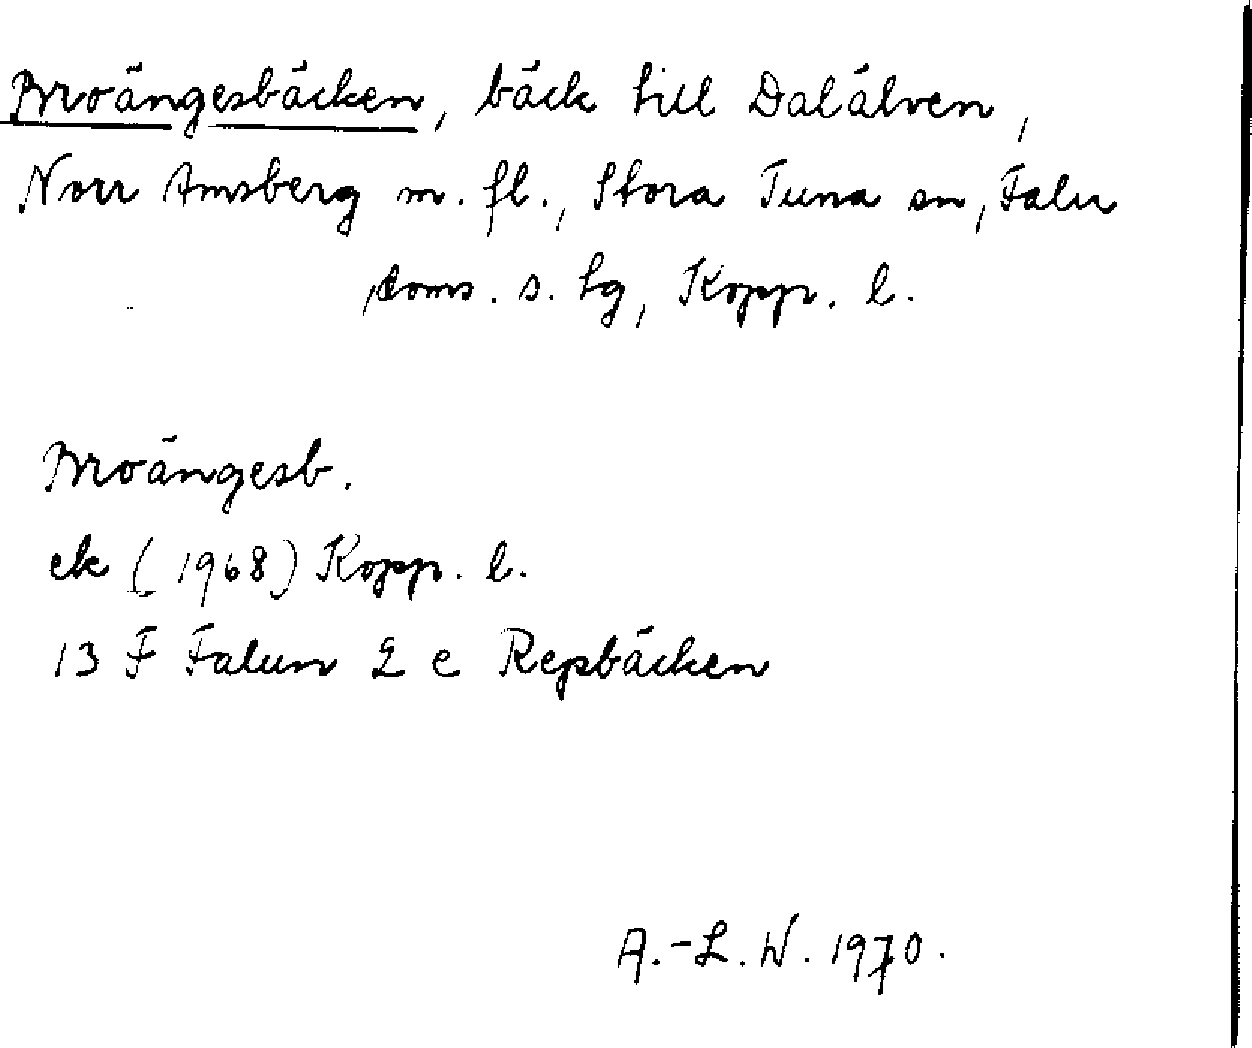 Broängesbäcken, bäck till Dalälven,
Norr Amsberg m. fl., Stora Tuna sn, Falu
doms. s. tg, Kopp. l.
Broängesb.
ek (1968) Kopp. l.
13 F Falun 2 c Repbäcken
A.-L. W. 1970.